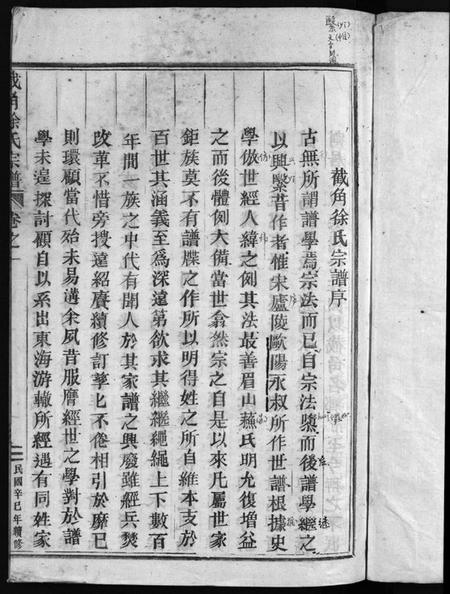 截角徐氏宗譜序
古無所謂譜學焉宗法而已自宗法隳而後譜學繼之
以興繄昔作者惟宋廬陵歐陽永叔所作世譜根據史
學倣世經人緯之例其法最善眉山蘇氏明允復增益
之而後體例大備當世翕然宗之自是以來凡屬世家
鉅族莫不有譜牒之作所以明得姓之所自維本支於
百世其涵義至爲深遠第欲求其繼繼繩繩上下數百
年間一族之中代有聞人於其家譜之興廢雖經兵燹
改革不惜旁搜遠紹賡續修訂孳孳不倦相引於靡已
則環顧當代殆未易遘余夙昔服膺經世之學對於譜
學未遑探討顧自以系出東海游轍所經遇有同姓家
截角徐氏宗譜
卷之一
民國辛巳年續修